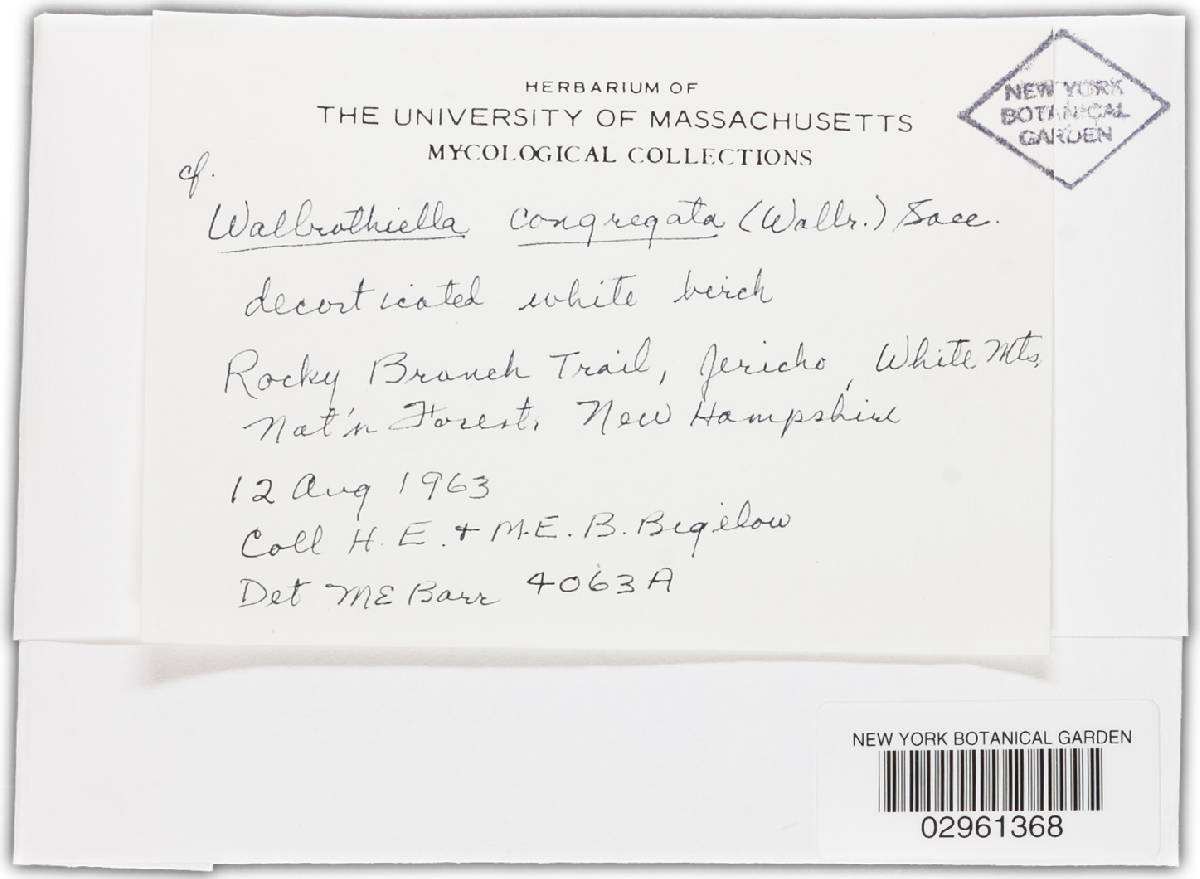 HERBARIUM OF
THE UNIVERSITY OF MASSACHUSETTS
MYCOLOGICAL COLLECTIONS
NEW YORK
BOTANICAL
GARDEN
cf.
Wallrothiella congregata (Wallr.) Sacc.
decorticated white birch
Rocky Branch Trail, Jericho, White Mts.
Nat'n Forest, New Hampshire
12 Aug 1963
Coll H. E. + M. E. B. Bigelow
Det ME Barr 4063A
NEW YORK BOTANICAL GARDEN
02961368